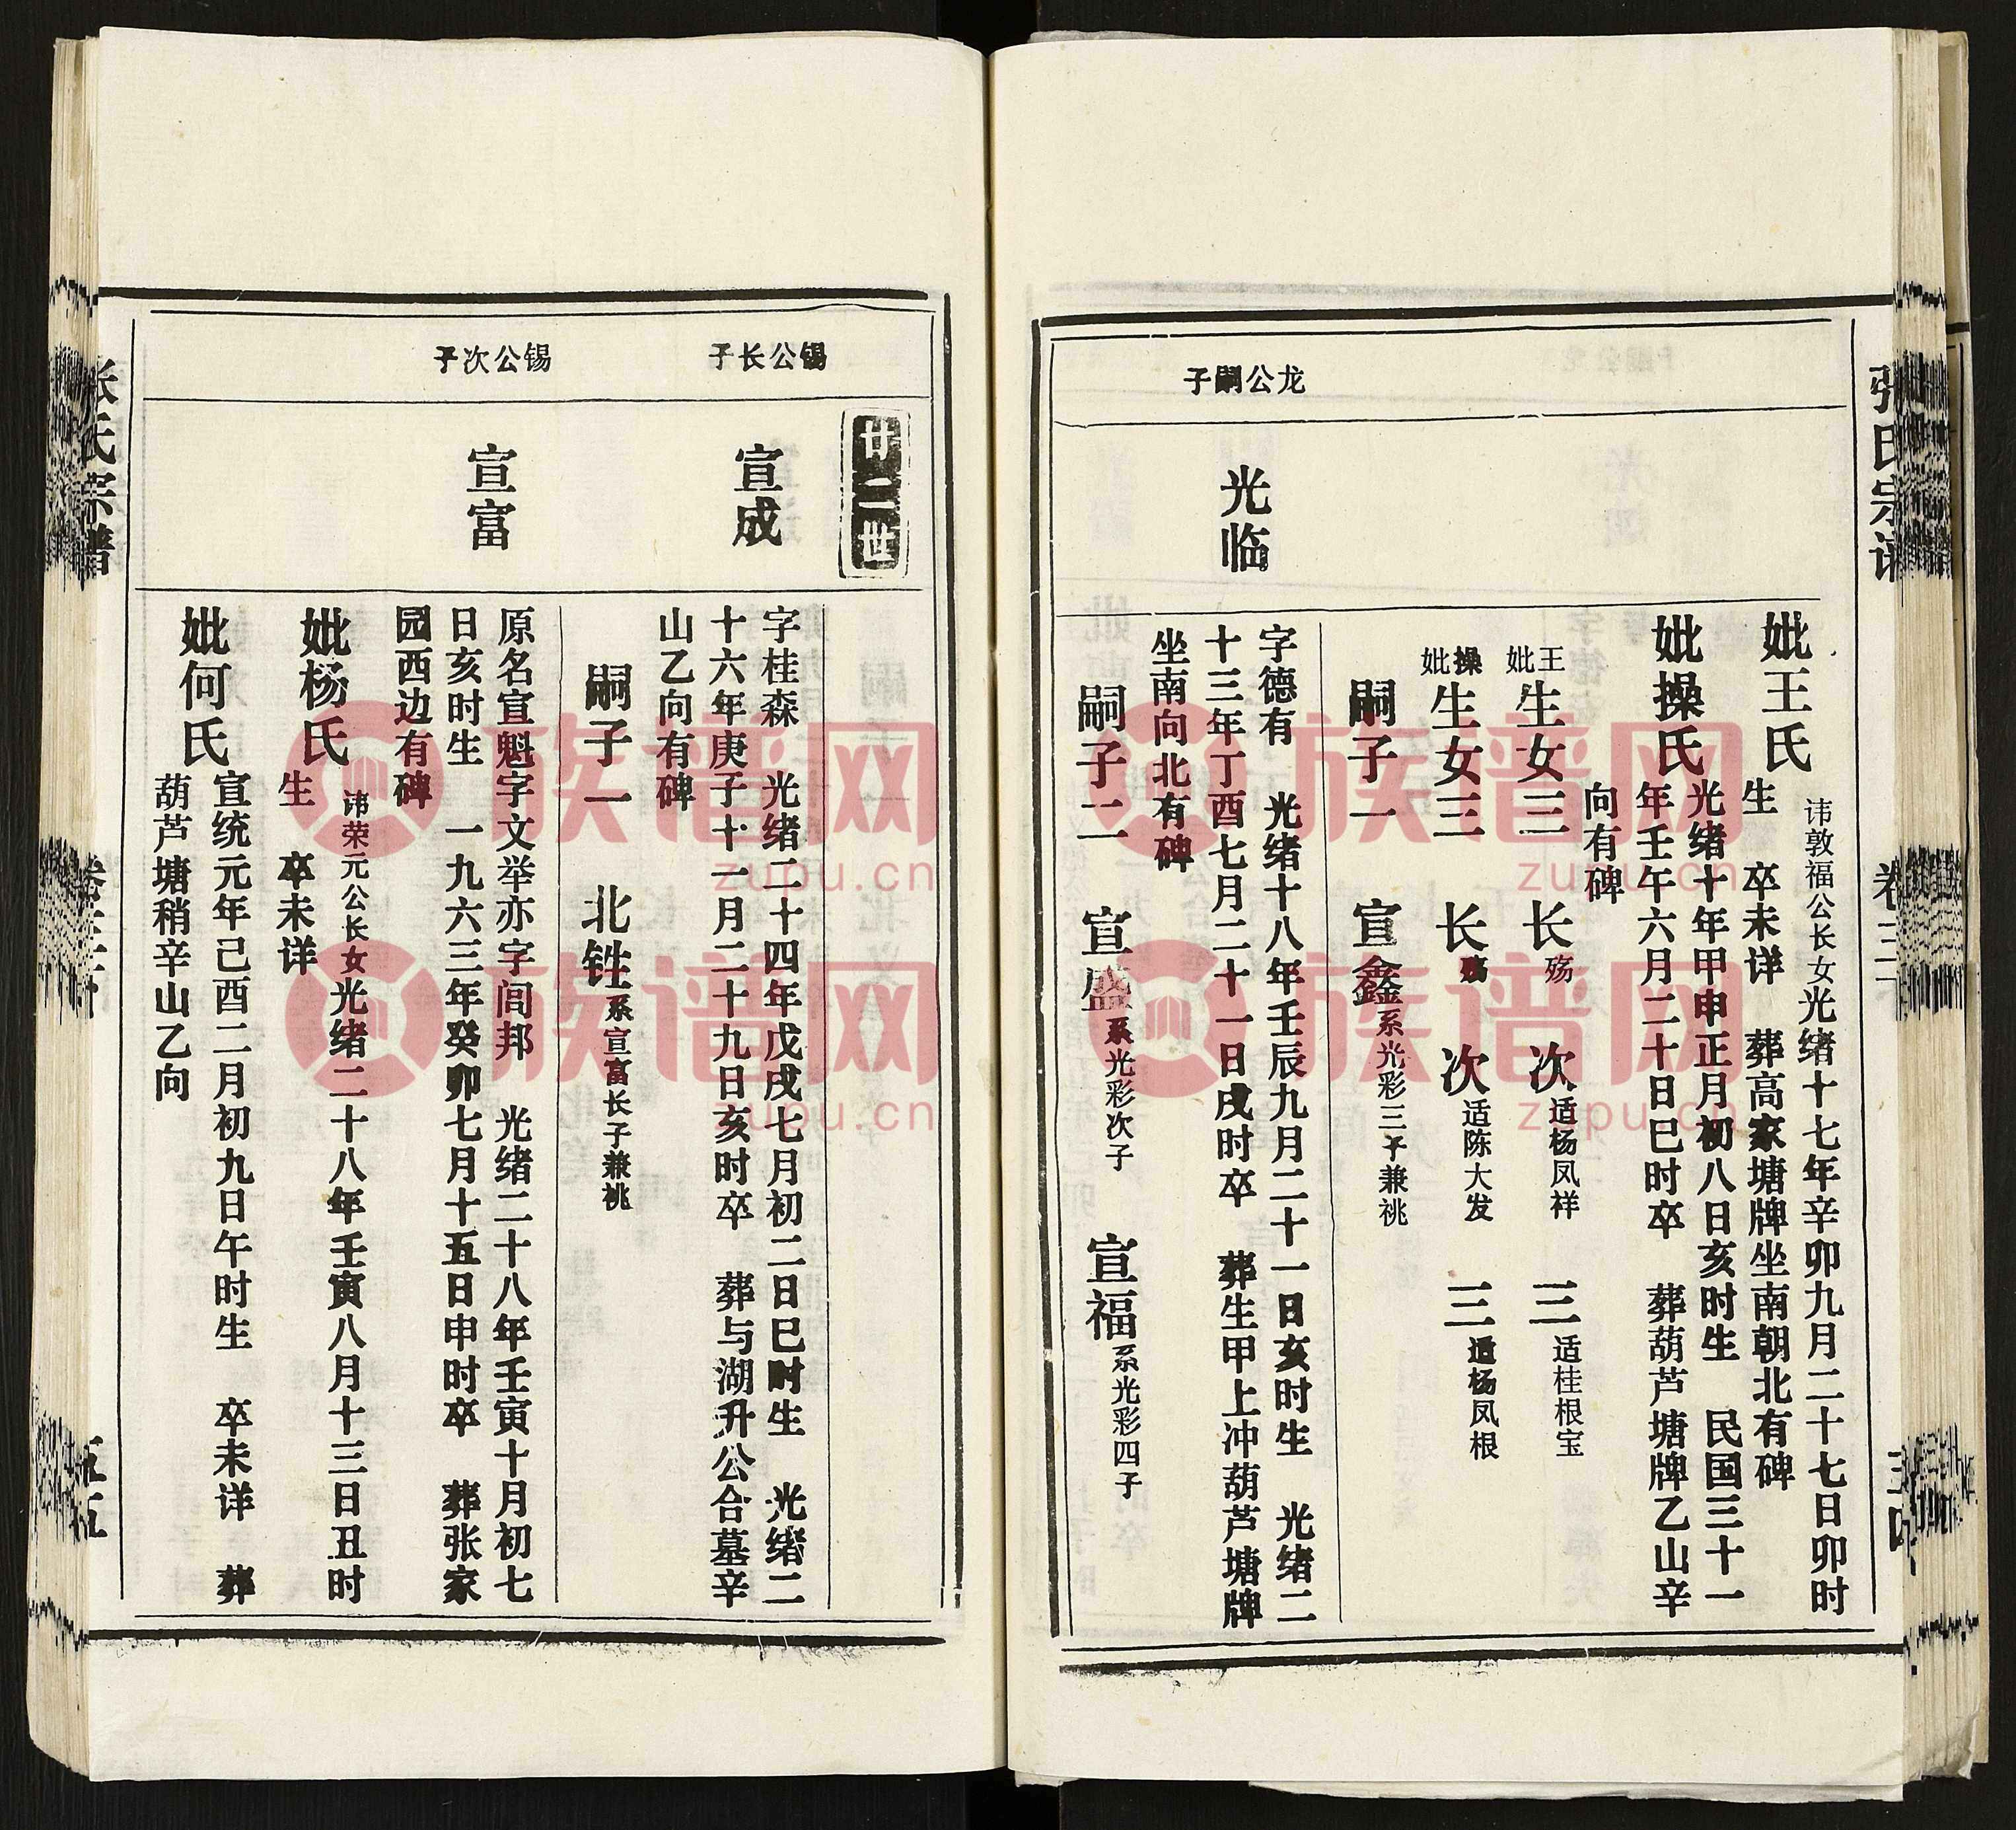 张氏宗谱
卷三十
妣王氏
讳敦福公长女光绪十七年辛卯九月二十七日卯时
生 卒未详 葬高家塘牌坐南朝北有碑
妣操氏
光绪十年甲申正月初八日亥时生 民国三十一
年壬午六月二十日巳时卒 葬葫芦塘牌乙山辛
向有碑
王妣生女三 长殇 次适杨凤祥 三适桂根宝
操妣生女三 长殇 次适陈大发 三适杨凤根
嗣子一 宣鑫系光彩三子兼祧
龙公嗣子
光临
字德有 光绪十八年壬辰九月二十一日亥时生 光绪二
十三年丁酉七月二十一日戌时卒 葬生甲上冲葫芦塘牌
坐南向北有碑
嗣子二 宣盛系光彩次子 宣福系光彩四子
廿二世
锡公长子
宣成
字桂森 光绪二十四年戊戌七月初二日巳时生 光绪二
十六年庚子十一月二十九日亥时卒 葬与湖升公合墓辛
山乙向有碑
嗣子一 北铚系宣富长子兼祧
锡公次子
宣富
原名宣魁字文举亦字闾邦 光绪二十八年壬寅十月初七
日亥时生 一九六三年癸卯七月十五日申时卒 葬张家
园西边有碑
妣杨氏
讳荣元公长女光绪二十八年壬寅八月十三日丑时
生 卒未详
妣何氏
宣统元年己酉二月初九日午时生 卒未详 葬
葫芦塘稍辛山乙向
张氏宗谱
五五